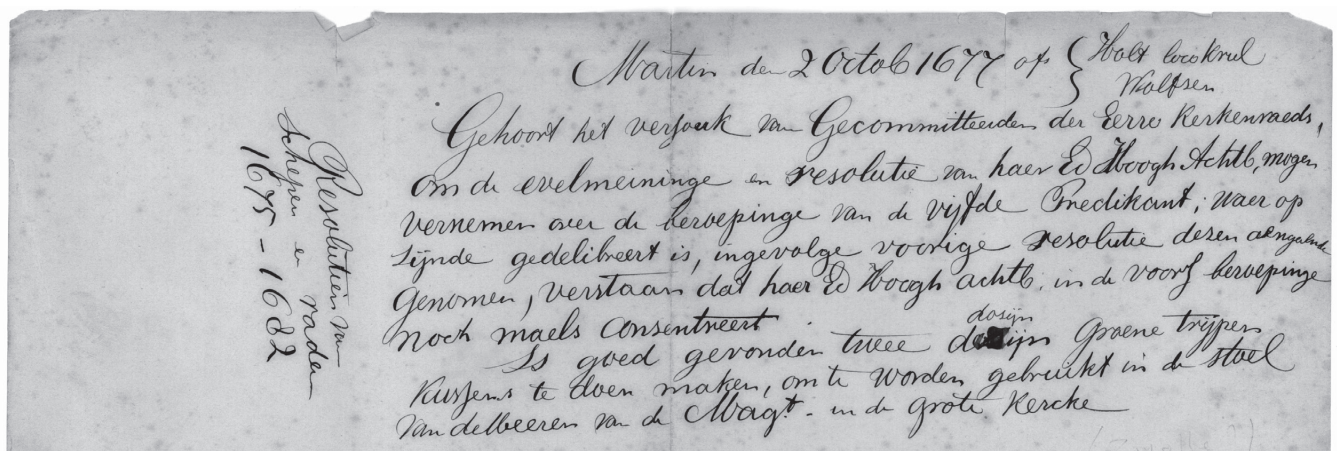 Martis den 2 Octob 1677 afs { Holt loco Krul
Wolfsen
Gehoort het versoek van Gecommitteerden der Eerw Kerkenraeds,
om de evelmeininge en resolutie van haer Ed Hoogh Achtb, mogen
vernemen over de beroepinge van de vijfde Predikant; waer op
sijnde gedelibreert is, ingevolge voorige resolutie dezen aengaende
genomen, verstaan dat haer Ed Hoogh achtb. in de voors beroepinge
noch maels Consentreert
dosijn
Is goed gevonden twee dosijn Groene trijpen
Kussens te doen maken, om te worden gebruikt in de stoel
van de Heeren van de Magt. in de grote Kercke
Resolutien van
Schepen en raden
1675 - 1682